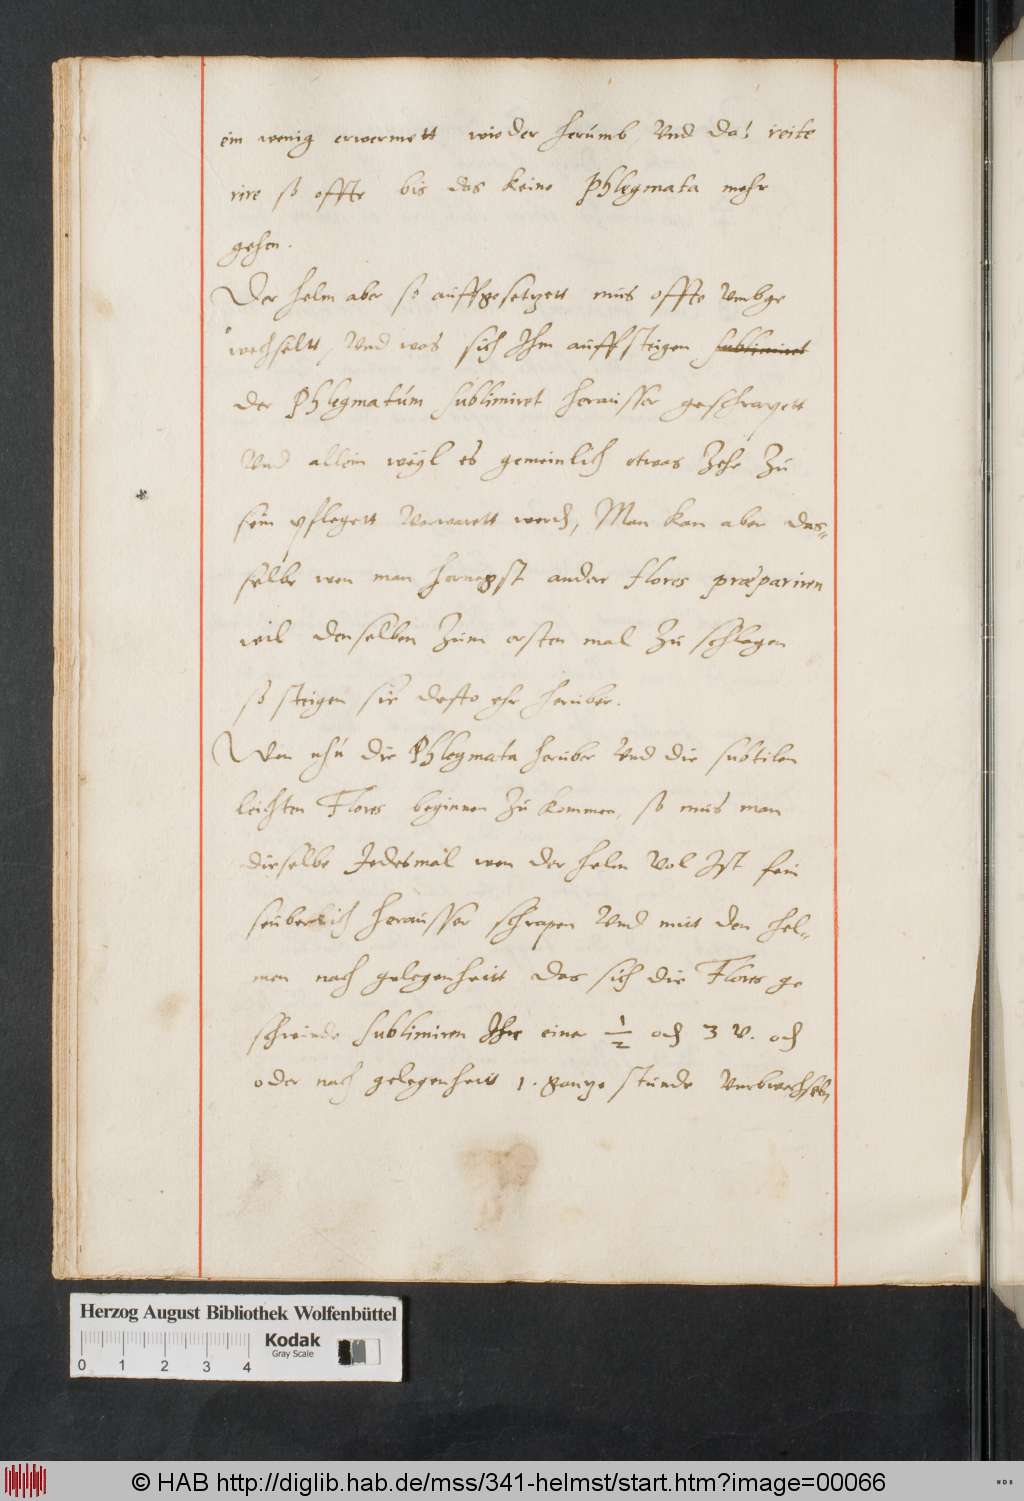 ein wenig erwermett wieder herumb, Vnd das reite
rire so offte bis das keine Phlegmata mehr
gehen.
Der helm aber so auffgesetzett mus offte vmbge
wechseltt, Vnd was sich Ihm auffsteigen sublimiret
der Phlegmatum sublimiret herausser geschrapett
Vnd allein weyl es gemeinlich etwas Zehe Zu
sein pflegett Verwarett werden, Man kan aber das=
selbe wen man hernegst ander flores præpariren
wil denselben Zum ersten mal Zu schlagen
so steigen sie desto ehr heruber.
Wen nhu die Phlegmata heruber Vnd die subtilen
leichten Flores beginnen Zu kommen, so mus man
dieselbe Jedesmal wen der helm Vol Ist fein
seuberlich herausser schrapen Vnd mitt den hel=
men nach gelegenheitt das sich die Flores ge
schwinde sublimiren Ihe einer 1/2 och 3 v. och
oder nach gelegenheit 1. gantze stunde Vmbwechseln
Herzog August Bibliothek Wolfenbüttel
Kodak
Gray Scale
0 1 2 3 4
© HAB http://diglib.hab.de/mss/341-helmst/start.htm?image=00066